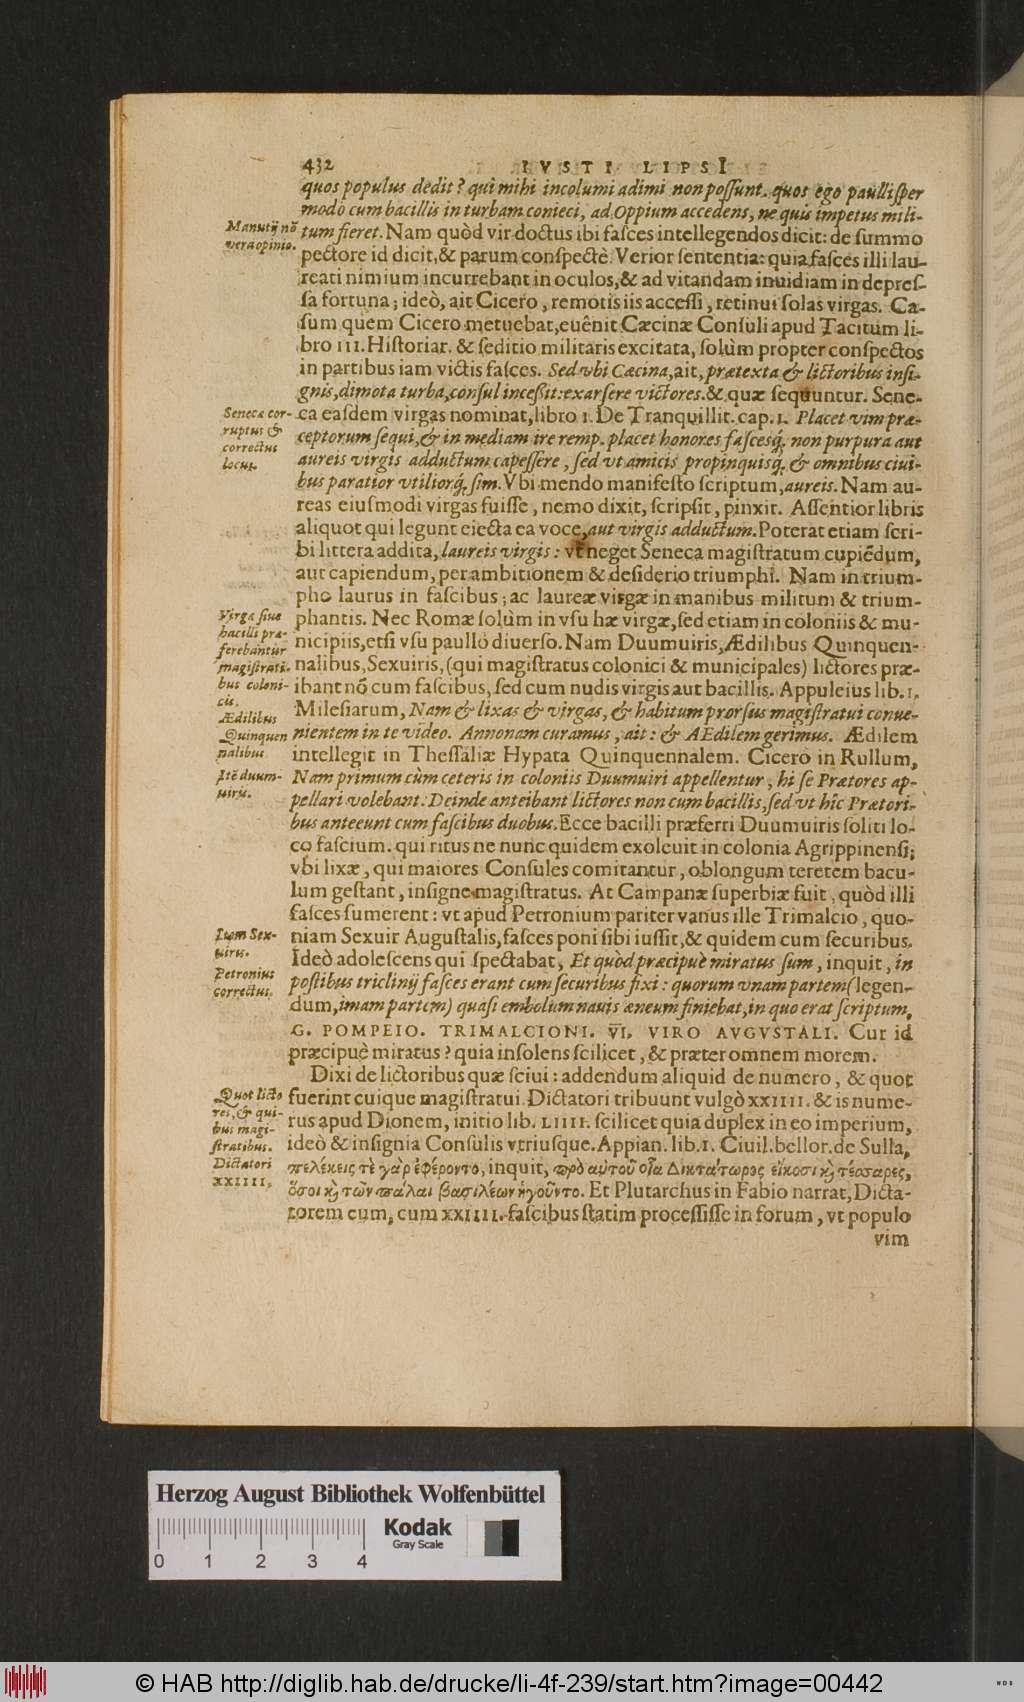 432
IVSTI LIPSI
quos populus dedit? qui mihi incolumi adimi non poſſunt. quos ego paulliſper
modò cum bacillis in turbam conieci, ad Oppium accedens, ne quis impetus mili-
tum fieret. Nam quòd vir doctus ibi faſces intellegendos dicit: de ſummo
Manutij nõ
vera opinio.
pectore id dicit, & parum conſpectè. Verior ſententia: quia faſces illi lau-
reati nimium incurrebant in oculos, & ad vitandam inuidiam in depreſ-
ſa fortuna; ideò, ait Cicero, remotis iis acceſſi, retinui ſolas virgas. Ca-
ſum quem Cicero metuebat, euênit Cæcinæ Conſuli apud Tacitum li-
bro III. Hiſtoriar. & ſeditio militaris excitata, ſolùm propter conſpectos
in partibus iam victis faſces. Sed vbi Cæcina, ait, prætexta & lictoribus inſi-
gnis, dimota turba, conſul inceſſit: exarſere victores. & quæ ſequuntur. Sene-
ca eaſdem virgas nominat, libro I. De Tranquillit. cap. I. Placet vim præ-
Seneca cor-
ruptus &
correctus
locus.
ceptorum ſequi, & in mediam ire remp. placet honores faſcesq́; non purpura aut
aureis virgis adductum capeſſere, ſed vt amicis propinquisq́; & omnibus ciui-
bus paratior vtiliorq́; ſim. Vbi mendo manifeſto ſcriptum, aureis. Nam au-
reas eiuſmodi virgas fuiſſe, nemo dixit, ſcripſit, pinxit. Aſſentior libris
aliquot qui legunt eiecta ea voce, aut virgis adductum. Poterat etiam ſcri-
bi littera addita, laureis virgis: vt neget Seneca magiſtratum cupiẽdum,
aut capiendum, per ambitionem & deſiderio triumphi. Nam in trium-
pho laurus in faſcibus; ac laureæ virgæ in manibus militum & trium-
phantis. Nec Romæ ſolùm in vſu hæ virgæ, ſed etiam in coloniis & mu-
Virgæ ſiue
bacilli præ-
ferebantur
magiſtrati-
bus coloni-
cis.
nicipiis, etſi vſu paullò diuerſo. Nam Duumuiris, Ædilibus Quinquen-
nalibus, Sexuiris, (qui magiſtratus colonici & municipales) lictores præ-
ibant nõ cum faſcibus, ſed cum nudis virgis aut bacillis. Appuleius lib. I.
Mileſiarum, Nam & lixas & virgas, & habitum prorſus magiſtratui conue-
Ædilibus
Quinquen
nalibus
nientem in te video. Annonam curamus, ait: & AEdilem gerimus. Ædilem
intellegit in Theſſaliæ Hypata Quinquennalem. Cicero in Rullum,
Nam primum cùm ceteris in coloniis Duumuiri appellentur, hi ſe Prætores ap-
Itẽ duum-
uiris.
pellari volebant. Deinde anteibant lictores non cum bacillis, ſed vt hîc Prætori-
bus anteeunt cum faſcibus duobus. Ecce bacilli præferri Duumuiris ſoliti lo-
co faſcium. qui ritus ne nunc quidem exoleuit in colonia Agrippinenſi;
vbi lixæ, qui maiores Conſules comitantur, oblongum teretem bacu-
lum geſtant, inſigne magiſtratus. At Campanæ ſuperbiæ fuit, quòd illi
faſces ſumerent: vt apud Petronium pariter vanus ille Trimalcio, quo-
niam Sexuir Auguſtalis, faſces poni ſibi iuſſit, & quidem cum ſecuribus.
Item Sex-
uiris.
Ideò adoleſcens qui ſpectabat, Et quod præcipuè miratus ſum, inquit, in
Petronius
correctus.
poſtibus triclinij faſces erant cum ſecuribus fixi: quorum vnam partem (legen-
dum, imam partem) quaſi embolum nauis æneum finiebat, in quo erat ſcriptum,
G. POMPEIO. TRIMALCIONI. VI, VIRO AVGVSTALI. Cur id
præcipuè miratus? quia inſolens ſcilicet, & præter omnem morem.
Dixi de lictoribus quæ ſciui: addendum aliquid de numero, & quot
Quot licto
res, & qui-
bus magi-
ſtratibus.
fuerint cuique magiſtratui. Dictatori tribuunt vulgò XXIIII. & is nume-
rus apud Dionem, initio lib. LIIII. ſcilicet quia duplex in eo imperium,
ideò & inſignia Conſulis vtriuſque. Appian. lib. I. Ciuil. bellor. de Sulla,
Dictatori
XXIIII.
πελέκεις τὲ γὰρ ἐφέροντο, inquit, πρὸ αὐτοῦ οἷα Δικτάτωρος εἴκοσι κỳ τέσσαρες,
ὅσοι κỳ τῶν πάλαι βασιλέων ἡγοῦντο. Et Plutarchus in Fabio narrat, Dicta-
torem eum, cum XXIIII. faſcibus ſtatim proceſſiſſe in forum, vt populo
vim
Herzog August Bibliothek Wolfenbüttel
0 1 2 3 4
Kodak
Gray Scale
© HAB http://diglib.hab.de/drucke/li-4f-239/start.htm?image=00442